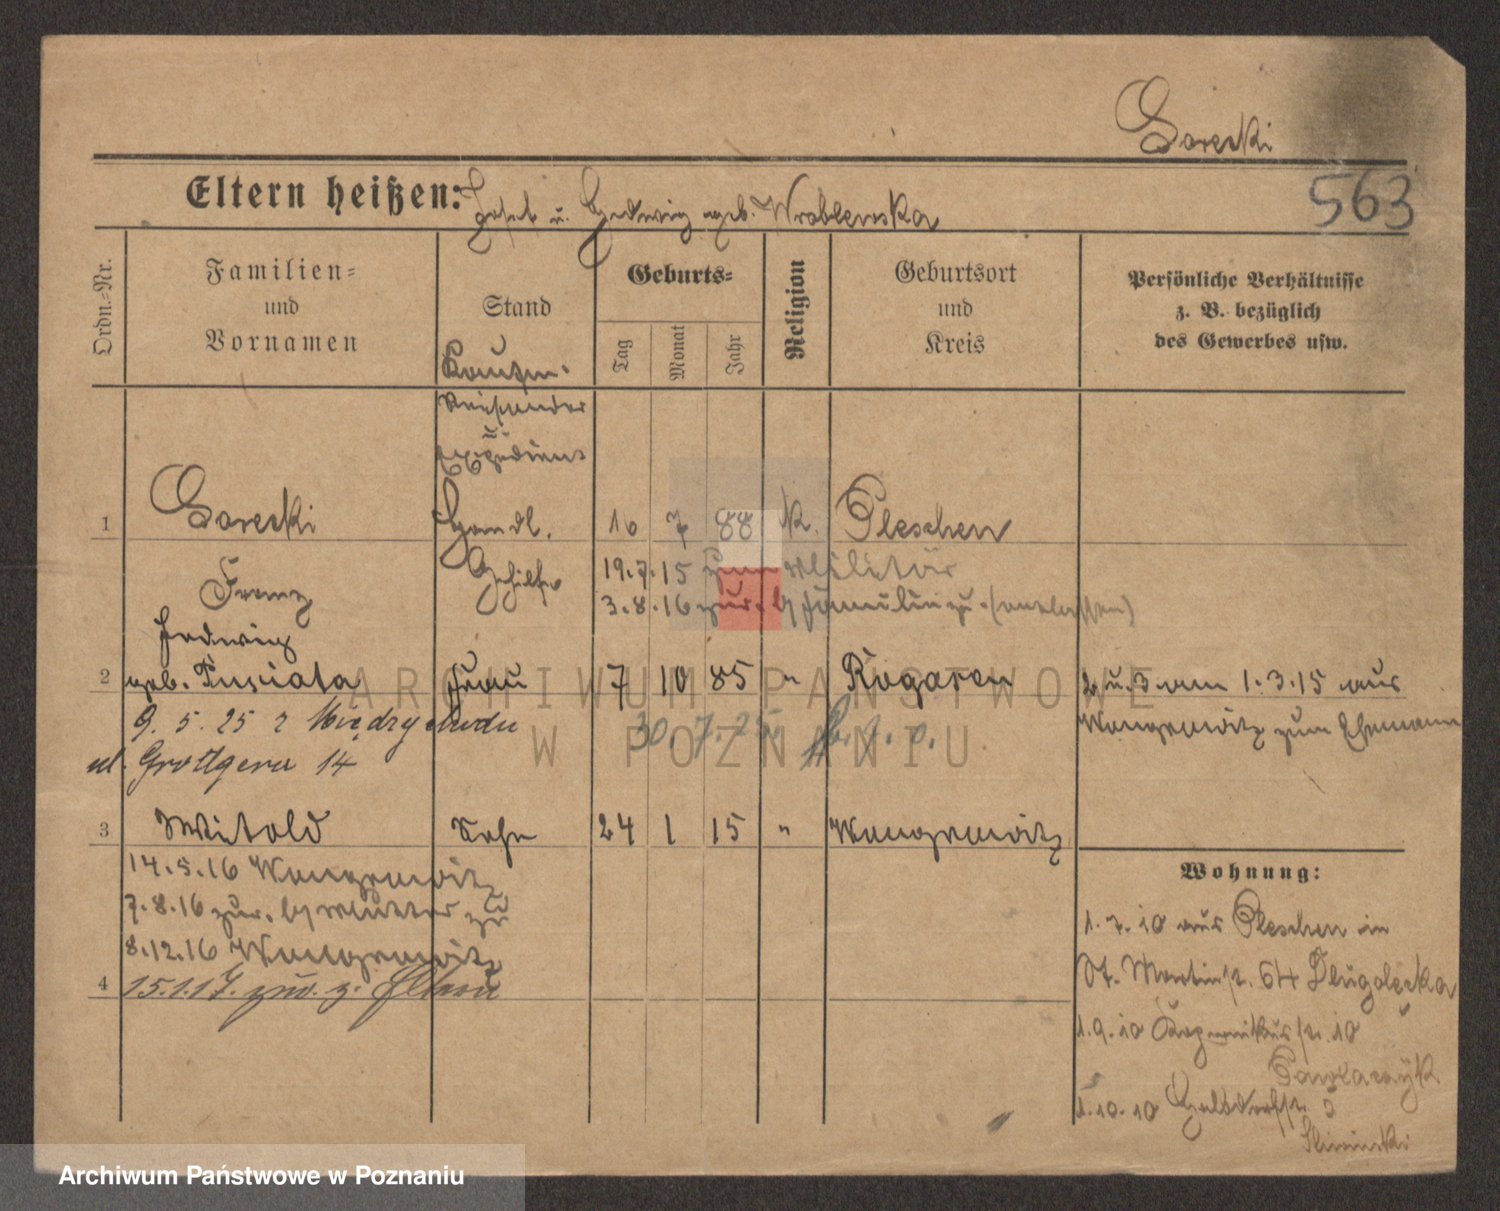 Gorecki
Eltern heißen: Josef u. Hedwig geb. Wroblewska
563
Ordn.-Nr.
Familien-
und
Vornamen
Stand
Geburts-
Tag
Monat
Jahr
Religion
Geburtsort
und
Kreis
Persönliche Verhältnisse
z. B. bezüglich
des Gewerbes usw.
Kaufm.
Reisender
u.
Expedient
1 Gorecki Handl. 16 7 88 k. Pleschen
Franz Gehilfe
19.7.15 zum Militär
3.8.16 zur. (entlassen)
Hedwig
2 geb. Frau 17 10 85 " Rogasen 2 u. 3 am 1.3.15 aus
Wongrowitz zum Ehemann
9. 5. 25 z Międzychodu
30. 7. 25.
ul. Grottgera 14
3 Witold Sohn 24 1 15 " Wongrowitz
14.5.16 Wongrowitz
7.8.16 zur. Mutter zu
8.12.16 Wongrowitz
4 15.1.17. zur. z. Eltern
Wohnung:
1.7.10 aus Pleschen in
St. Martinstr. 64 Dlugolecka
1.9.10 Kopernikusstr. 10
1.10.10
ARCHIWUM PAŃSTWOWE
W POZNANIU
Archiwum Państwowe w Poznaniu